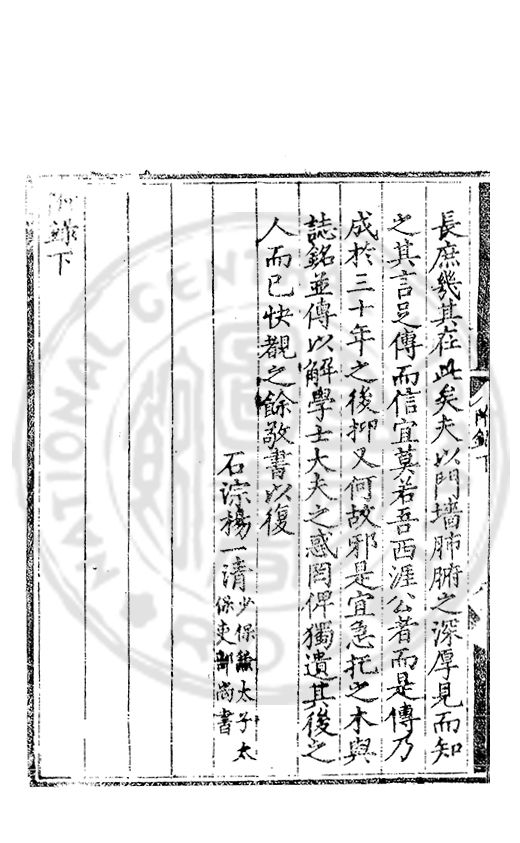 長庶幾其在此矣夫以門墻肺腑之深厚見而知
之其言足傳而信宜莫若吾西涯公者而是傳乃
成於三十年之後抑又何故邪是宜急托之木與
誌銘並傳以解學士大夫之惑罔俾獨遺其後之
人而已快覩之餘敬書以復
石淙楊一清少保兼太子太
保吏部尚書
附錄下
附錄下
NATIONAL CENTRAL